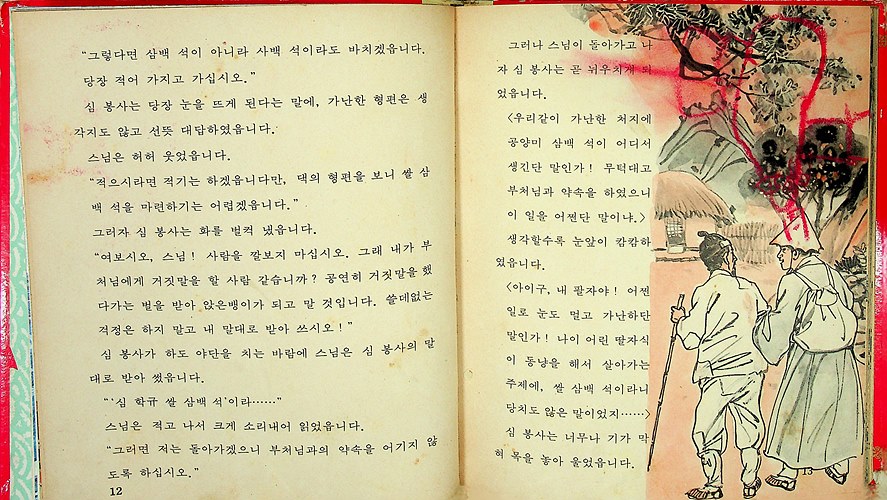 “그렇다면 삼백 석이 아니라 사백 석이라도 바치겠읍니다.
당장 적어 가지고 가십시오.”
심 봉사는 당장 눈을 뜨게 된다는 말에, 가난한 형편은 생
각지도 않고 선뜻 대답하였읍니다.
스님은 허허 웃었읍니다.
“적으시라면 적기는 하겠읍니다만, 댁의 형편을 보니 쌀 삼
백 석을 마련하기는 어렵겠읍니다.”
그러자 심 봉사는 화를 벌컥 냈읍니다.
“여보시오, 스님! 사람을 깔보지 마십시오. 그래 내가 부
처님에게 거짓말을 할 사람 같습니까? 공연히 거짓말을 했
다가는 벌을 받아 앉은뱅이가 되고 말 것입니다. 쓸데없는
걱정은 하지 말고 내 말대로 받아 쓰시오!”
심 봉사가 하도 야단을 치는 바람에 스님은 심 봉사의 말
대로 받아 썼읍니다.
“‘심 학규 쌀 삼백 석’이라……”
스님은 적고 나서 크게 소리내어 읽었읍니다.
“그러면 저는 돌아가겠으니 부처님과의 약속을 어기지 않
도록 하십시오.”
12
그러나 스님이 돌아가고 나
자 심 봉사는 곧 뉘우치게 되
었읍니다.
〈우리같이 가난한 처지에
공양미 삼백 석이 어디서
생긴단 말인가! 무턱대고
부처님과 약속을 하였으니
이 일을 어쩐단 말이냐.〉
생각할수록 눈앞이 캄캄하
였읍니다.
〈아이구, 내 팔자야! 어쩐
일로 눈도 멀고 가난하단
말인가! 나이 어린 딸자식
이 동냥을 해서 살아가는
주제에, 쌀 삼백 석이라니
당치도 않은 말이었지……〉
심 봉사는 너무나 기가 막
혀 목을 놓아 울었읍니다.
13